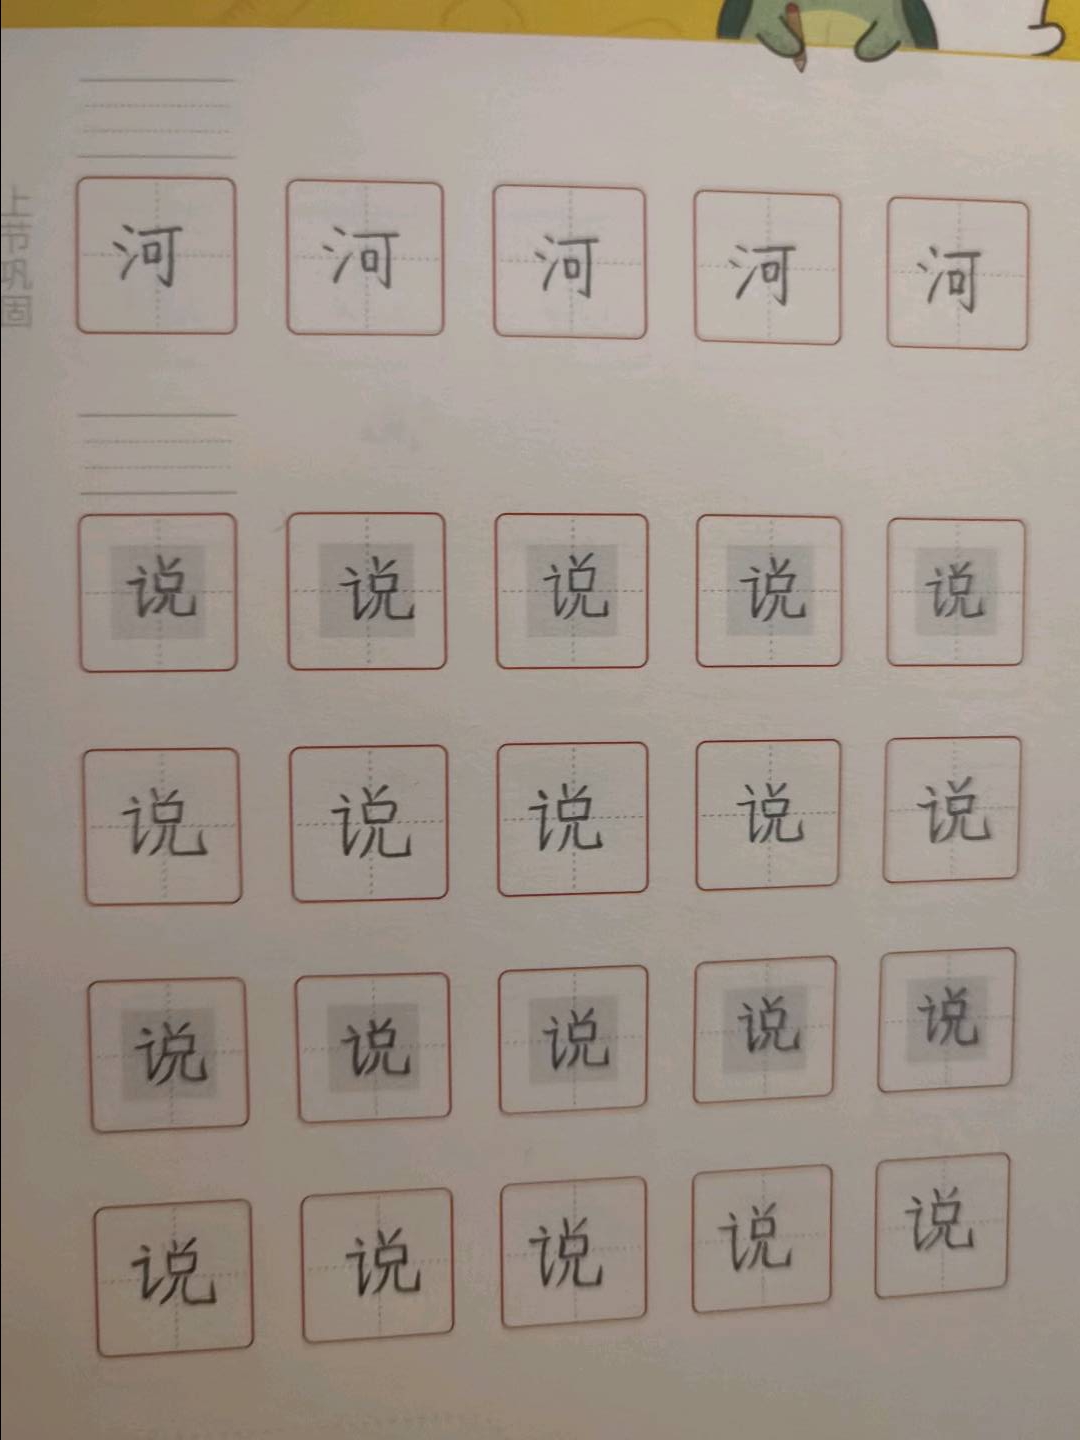 上节巩固
河 河 河 河 河
说 说 说 说 说
说 说 说 说 说
说 说 说 说 说
说 说 说 说 说